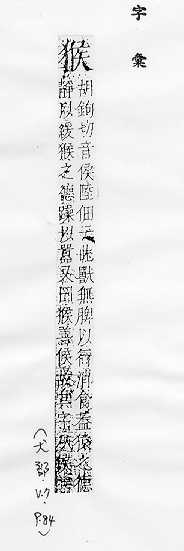 字彙
猴
胡鉤切音侯陸佃云此獸無脾以行消食蓋猿之德
靜以緩猴之德躁以囂又曰猴善候故其字从侯
(犬部.V.7
P.84)